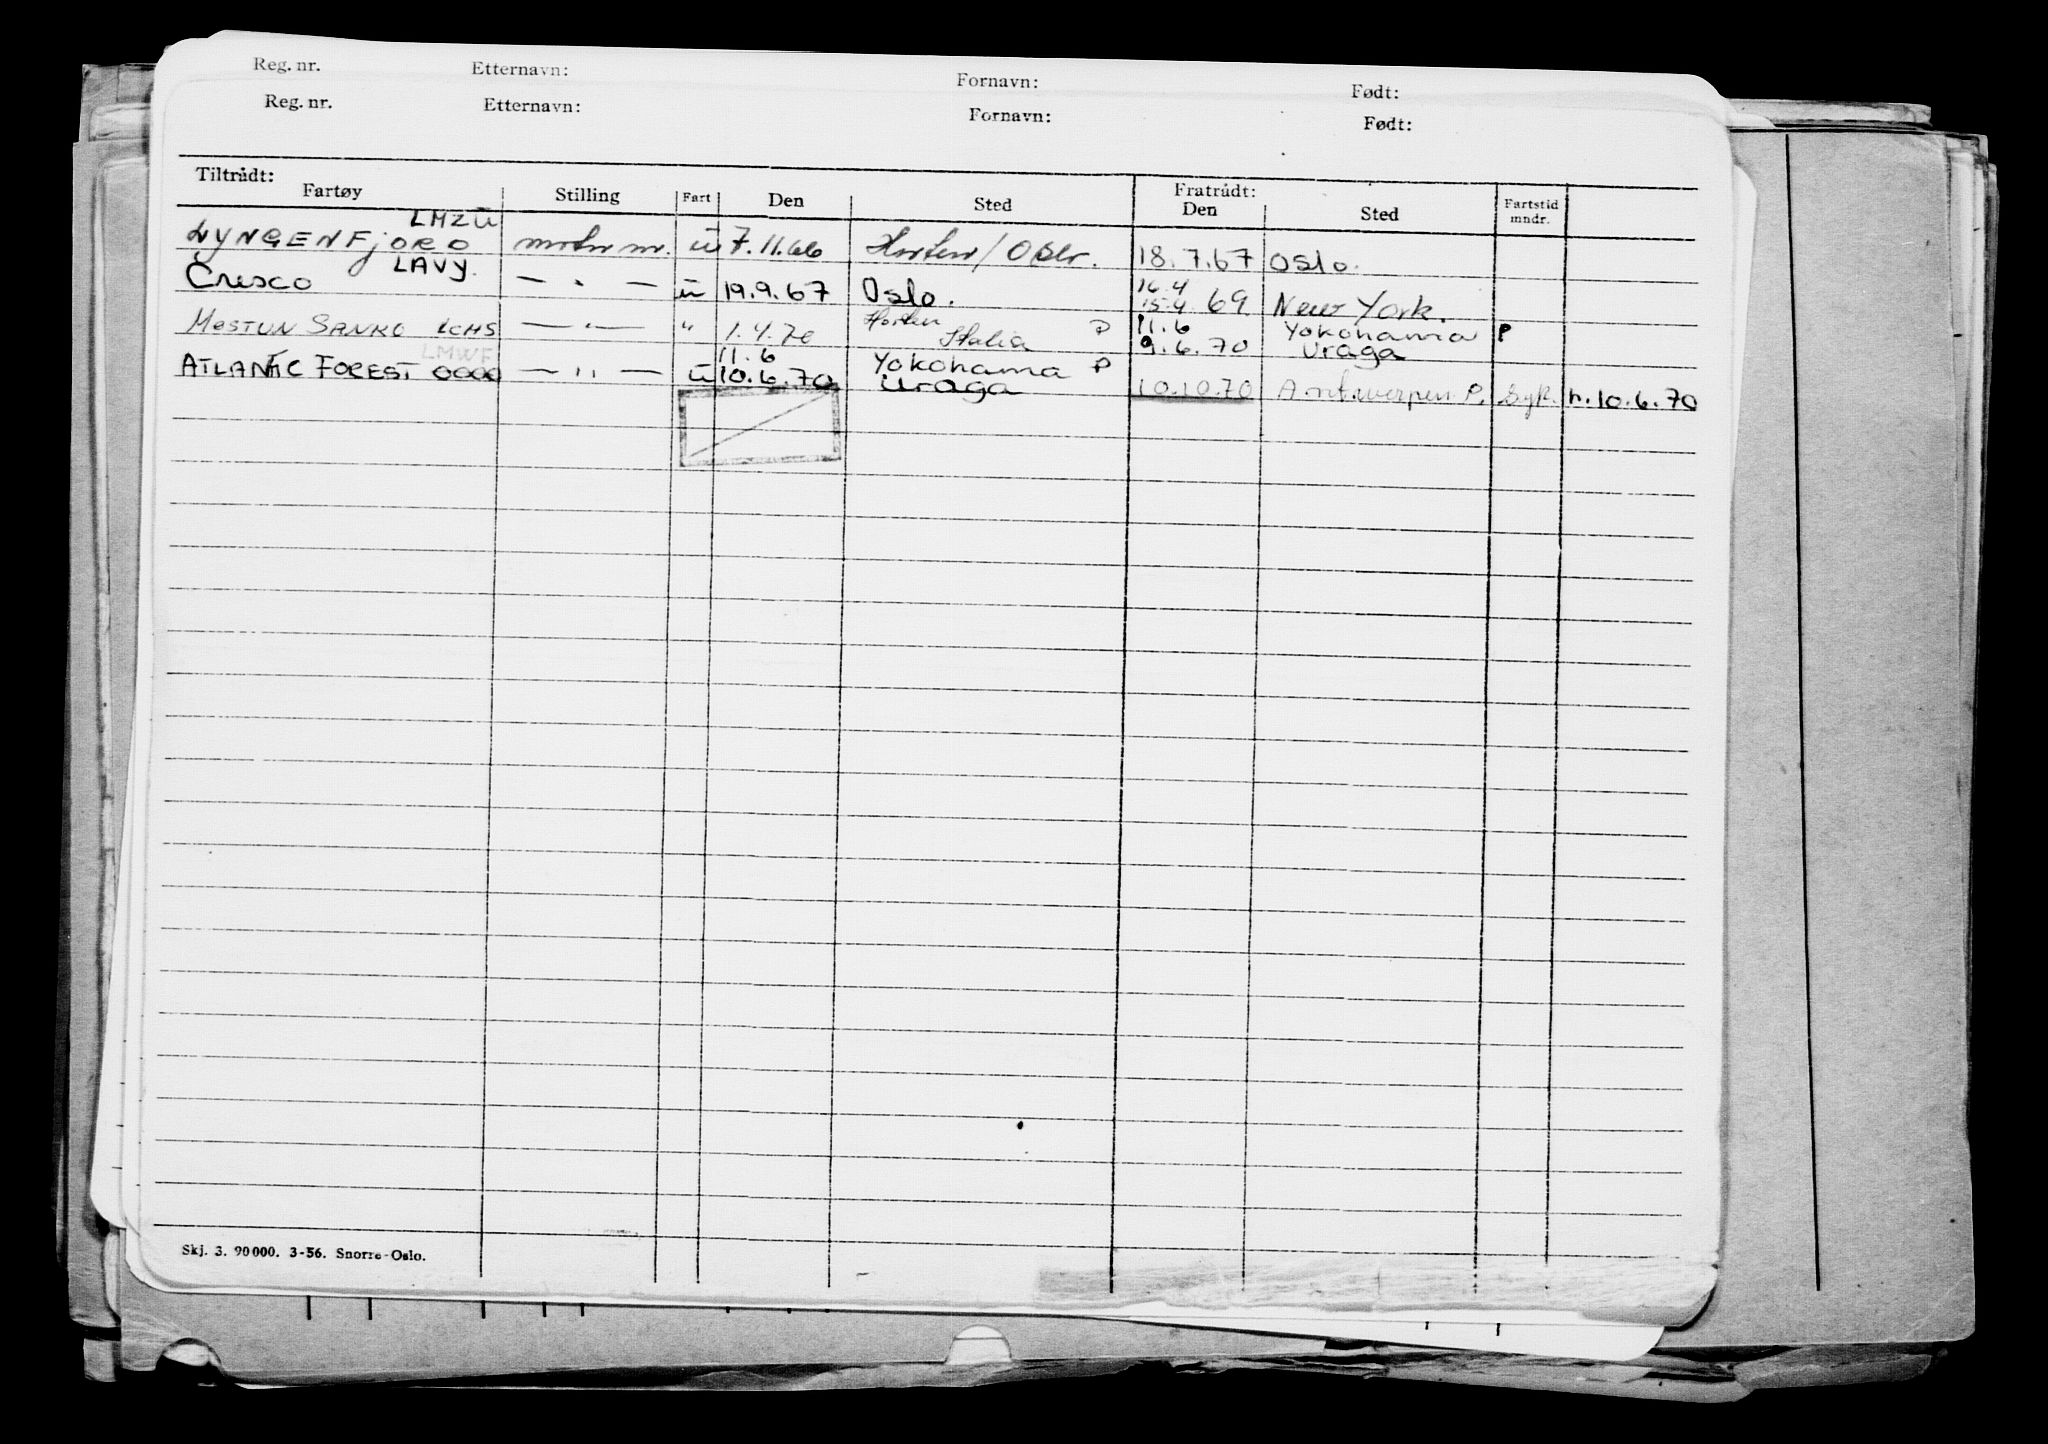 Reg. nr. Etternavn: Fornavn: Født:
Reg. nr. Etternavn: Fornavn: Født:
Tiltrådt: Fratrådt:
Fartøy Stilling Fart Den Sted Den Sted Fartstid mndr.
LMZU
LYNGENFJORD motor m. u 7.11.66 Horten/Oslo. 18.7.67 Oslo.
LAVY.
Cresco — " — u 19.9.67 Oslo. 16.4 15.4 69 New York.
Horten 11.6 Yokohama P
MOSTUN SANKO LCHS — " — " 1.4.70 Italia P 9.6.70 Uraga
LMWF 11.6 Yokohama P
ATLANTIC FOREST — " — u 10.6.70 Uraga 10.10.70 Antwerpen P. Syk. h.10.6.70
Skj. 3. 90000. 3-56. Snorre-Oslo.